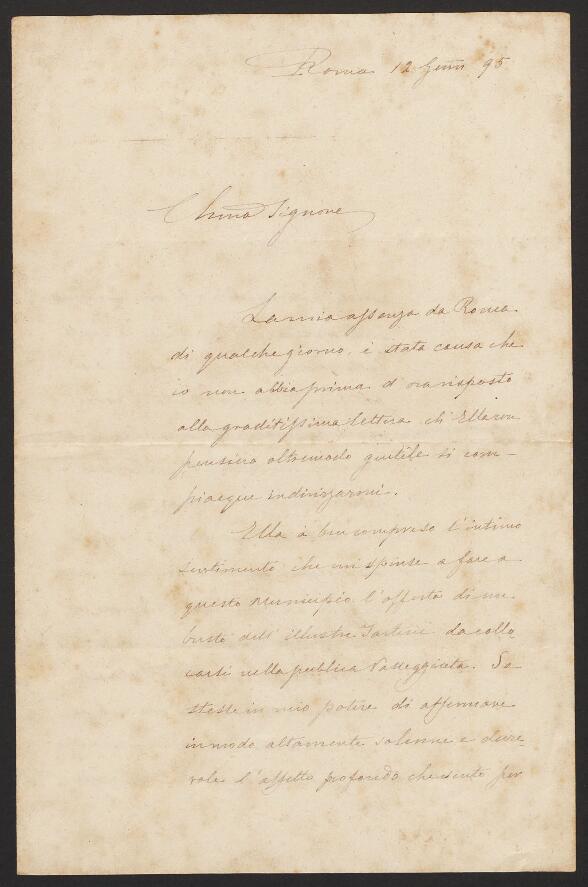 Roma 12 Genn 95
Chmo Signore
La mia assenza da Roma
di qualche giorno, è stata causa che
io non abbia prima d'ora risposto
alla graditissima lettera ch'Ella con
pensiero oltremodo gentile si com-
piacque indirizzarmi.
Ella à ben compreso l'intimo
sentimento che mi spinse a fare a
questo Municipio l'offerta di un
busto dell'illustre Tartini da collo
carsi nella publica Passeggiata. Se
stesse in mio potere di affermare
in modo altamente solenne e dure-
vole l'affetto profondo che sento per